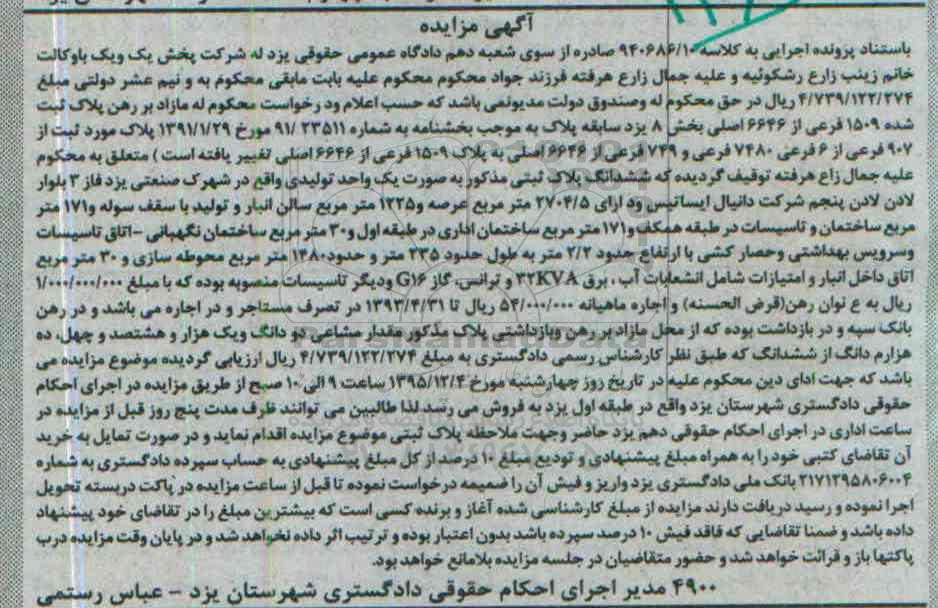 آگهی مزایده
باستناد پرونده اجرایی به کلاسه ۹۴۰۶۸۶/۱۰ صادره از سوی شعبه دهم دادگاه عمومی حقوقی یزد له شرکت پخش یک ویک باوکالت
خانم زینب زارع رشکوئیه و علیه جمال زارع هرفته فرزند جواد محکوم محکوم علیه بابت مابقی محکوم به و نیم عشر دولتی مبلغ
۴/۷۳۹/۱۲۲/۲۷۴ ریال در حق محکوم له وصندوق دولت مدیونمی باشد که حسب اعلام ود رخواست محکوم له مازاد بر رهن پلاک ثبت
شده ۱۵۰۹ فرعی از ۶۶۴۶ اصلی بخش ۸ یزد سابقه پلاک به موجب بخشنامه به شماره ۲۳۵۱۱ /۹۱ مورخ ۱۳۹۱/۱/۲۹ پلاک مورد ثبت از
۹۰۷ فرعی از ۶ فرعی ۷۴۸۰ فرعی و ۷۴۹ فرعی از ۶۶۴۶ اصلی به پلاک ۱۵۰۹ فرعی از ۶۶۴۶ اصلی تغییر یافته است ) متعلق به محکوم
علیه جمال زاع هرفته توقیف گردیده که ششدانگ پلاک ثبتی مذکور به صورت یک واحد تولیدی واقع در شهرک صنعتی یزد فاز ۳ بلوار
لادن لادن پنجم شرکت دانیال ایساتیس ود ارای ۲۷۰۴/۵ متر مربع عرصه و۱۲۲۵ متر مربع سالن انبار و تولید با سقف سوله و۱۷۱ متر
مربع ساختمان و تاسیسات در طبقه همکف و۱۷۱ متر مربع ساختمان اداری در طبقه اول و۳۰ متر مربع ساختمان نگهبانی -اتاق تاسیسات
وسرویس بهداشتی وحصار کشی با ارتفاع حدود ۲/۲ متر به طول حدود ۲۳۵ متر و حدود۱۴۸۰ متر مربع محوطه سازی و ۳۰ متر مربع
اتاق داخل انبار و امتیازات شامل انشعابات آب ، برق ۳۲KVA و ترانس، گاز G۱۶ ودیگر تاسیسات منصوبه بوده که با مبلغ ۱/۰۰۰/۰۰۰/۰۰۰
ریال به ع نوان رهن(قرض الحسنه) و اجاره ماهیانه ۵۴/۰۰۰/۰۰۰ ریال تا ۱۳۹۳/۴/۳۱ در تصرف مستاجر و در اجاره می باشد و در رهن
بانک سپه و در بازداشت بوده که از محل مازاد بر رهن وبازداشتی پلاک مذکور مقدار مشاعی دو دانگ ویک هزار و هشتصد و چهل، ده
هزارم دانگ از ششدانگ که طبق نظر کارشناس رسمی دادگستری به مبلغ ۴/۷۳۹/۱۲۲/۲۷۴ ریال ارزیابی گردیده موضوع مزایده می
باشد که جهت ادای دین محکوم علیه در تاریخ روز چهارشنبه مورخ ۱۳۹۵/۱۲/۴ ساعت ۹ الی ۱۰ صبح از طریق مزایده در اجرای احکام
حقوقی دادگستری شهرستان یزد واقع در طبقه اول یزد به فروش می رسد لذا طالبین می توانند ظرف مدت پنج روز قبل از مزایده در
ساعت اداری در اجرای احکام حقوقی دهم یزد حاضر وجهت ملاحظه پلاک ثبتی موضوع مزایده اقدام نماید و در صورت تمایل به خرید
آن تقاضای کتبی خود را به همراه مبلغ پیشنهادی و تودیع مبلغ ۱۰ درصد از کل مبلغ پیشنهادی به حساب سپرده دادگستری به شماره
۲۱۷۱۲۹۵۸۰۶۰۰۴ بانک ملی دادگستری یزد واریز و فیش آن را ضمیمه درخواست نموده تا قبل از ساعت مزایده در پاکت دربسته تحویل
اجرا نموده و رسید دریافت دارند مزایده از مبلغ کارشناسی شده آغاز و برنده کسی است که بیشترین مبلغ را در تقاضای خود پیشنهاد
داده باشد و ضمنا تقاضایی که فاقد فیش ۱۰ درصد سپرده باشد بدون اعتبار بوده و ترتیب اثر داده نخواهد شد و در پایان وقت مزایده درب
پاکتها باز و قرائت خواهد شد و حضور متقاضیان در جلسه مزایده بلامانع خواهد بود.
۴۹۰۰ مدیر اجرای احکام حقوقی دادگستری شهرستان یزد - عباس رستمی